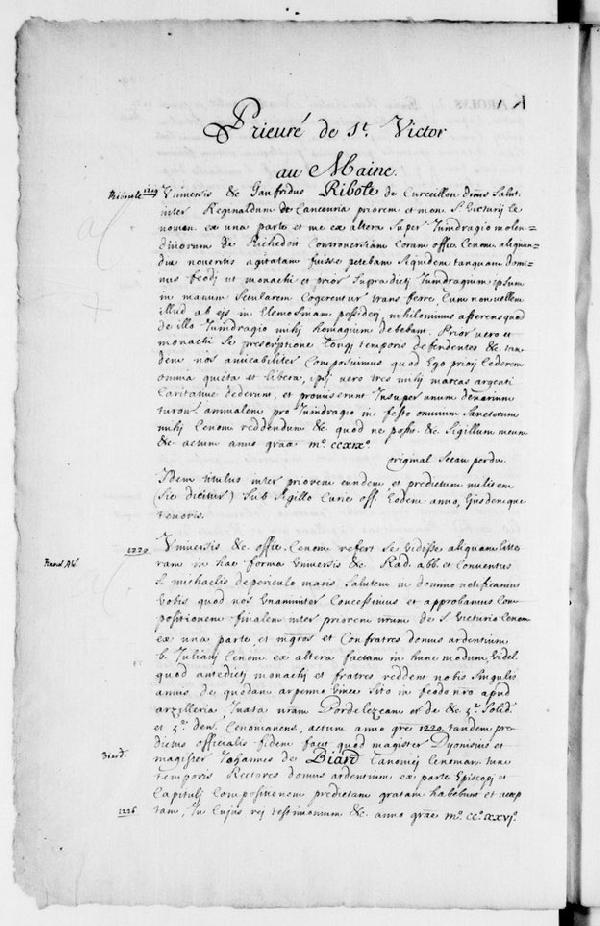 Prieuré de St. Victor
au Maine.
1219 Universis &c Gaufridus Ribole de Curceillon dnus Salut.
inter Reginaldum de priorem et mon. S. Victurij
ex una parte et me ex altera super Juindragio molen=
dinorum de Richedon Controversiam Coram offic. Cenom. aliquan=
diu noveritis agitatam fuisse petebam Siquidem tanquam Domi=
nus feodj ut monachi et prior supradictj Juindragium ipsum
in manum Secularem Cogerentur transferre, Cum non vellem
illud ab ejs in Elemosinam possiderj, nihilominus asserens quod
de illo Juindragio mihj homagium debebam. Prior vero et
monachi se prescriptione longj temporis defendentes &c tan
dem nos amicabiliter Composuimus quod Ego priorj Cederem
omnia quita et libera, ipsj vero tres mihj marcas argenti
Caritative dederunt, et promiserunt Insuper unum denarium
turon. annualem pro Juindragio in festo omnium Sanctorum
mihj Cenom. reddendum &c quod ne posit. &c Sigillum meum
&c actum anno graæ mo. ccxixo.
original Sceau perdu.
Idem titulus inter priorem eundem, et predictum militem
(sic dicitur) Sub Sigillo Curie off. Eodem anno, Ejusdemque
tenoris.
1220 Universis &c offic. Cenom. refert se vidisse aliquam litte
ram in hac forma Universis &c Rad. abb. et Conventus
S. michaelis de periculo maris Salutem in domino notificamus
vobis quod nos Unanimiter Concessimus et approbamus Com
positionem finalem inter priorem nrum de S. Victurio Cenom.
ex una parte, et mgros et Confratres domus ardentium
b. Julianj Cenom. ex altera factam in hunc modum, videl.
quod antedictj monachj et fratres reddent nobis Singulis
annis de quodam arpenno Vinee Sito in feodo nro apud
arzilleria Juxta nram Pordelezeam &c de &c 3. Solid.
et 3. den. Cenomanens. actum anno gre 1220. tandem pre
dictus officialis fidem facit quod magister Dyonisius et
Biard magister Johannes de Biard Canonicj Cenoman. tunc
temporis Rectores domus ardentium ex parte Episcopj et
Capitulj Compositionem predictam gratam habebunt et accep
1226 tam, In Cujus rej testimonium &c. anno graæ mo. cco. xxvjo.